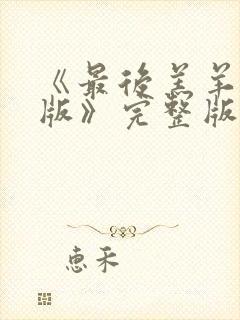 《最後羔羊
版》完整版
惠禾